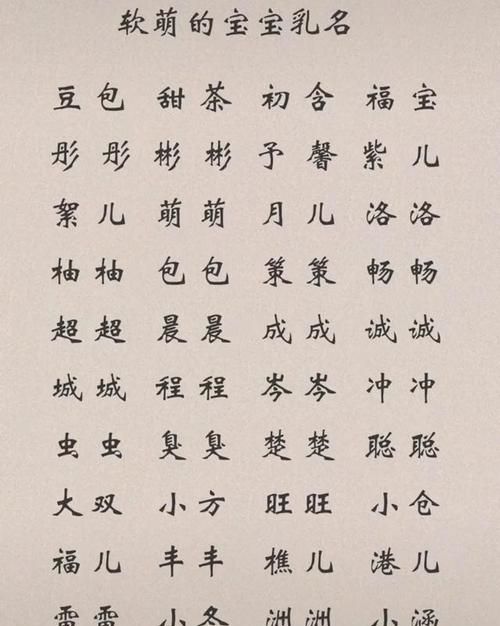 软萌的宝宝乳名
豆包 甜茶 初含 福宝
彤彤 彬彬 予馨 紫儿
絮儿 萌萌 月儿 洛洛
柚柚 包包 策策 畅畅
超超 晨晨 成成 诚诚
城城 程程 岑岑 冲冲
虫虫 臭臭 楚楚 聪聪
大双 小方 旺旺 小仓
福儿 丰丰 樵儿 港儿
雷雷 小冬 洲洲 小涵